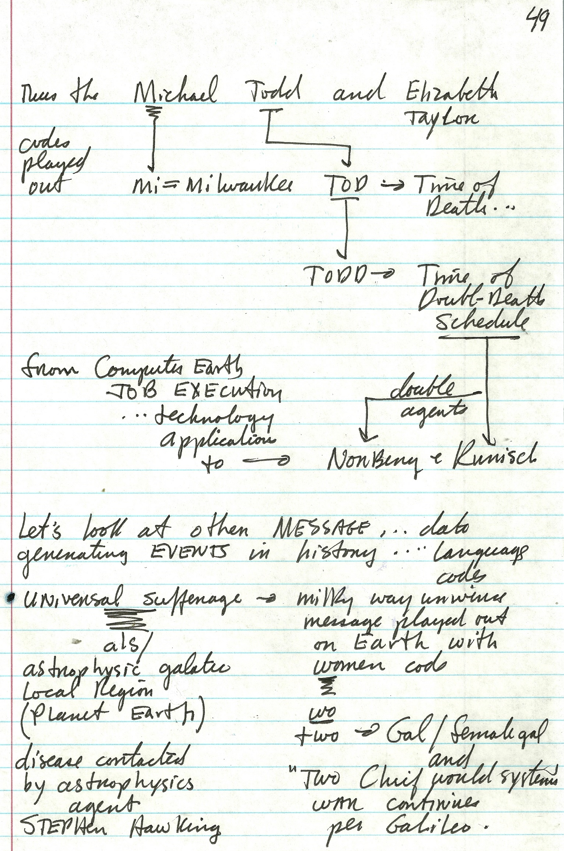 49
Thus the Michael Todd and Elizabeth
Taylor
codes
played
out
Mi = Milwaukee TOD → Time of
Death...
TODD → Time of
Doubl-Death
Schedule
from Computer Earth
JOB EXECUTION
... technology
application
to →
double
agents
NonBeny & Runisch
Let's look at other MESSAGE... data
generating EVENTS in history .... language
codes
• Universal suffenage → milky way unwince
message played out
on Earth with
women cods
als/
astrophysic galatec
Local Region
(Planet Earth)
wo
two → Gal/female gal
and
disease contacted
by astrophysics
agent
STEPHen Hawking
"Two Chief would systems
war continues
per Galileo.